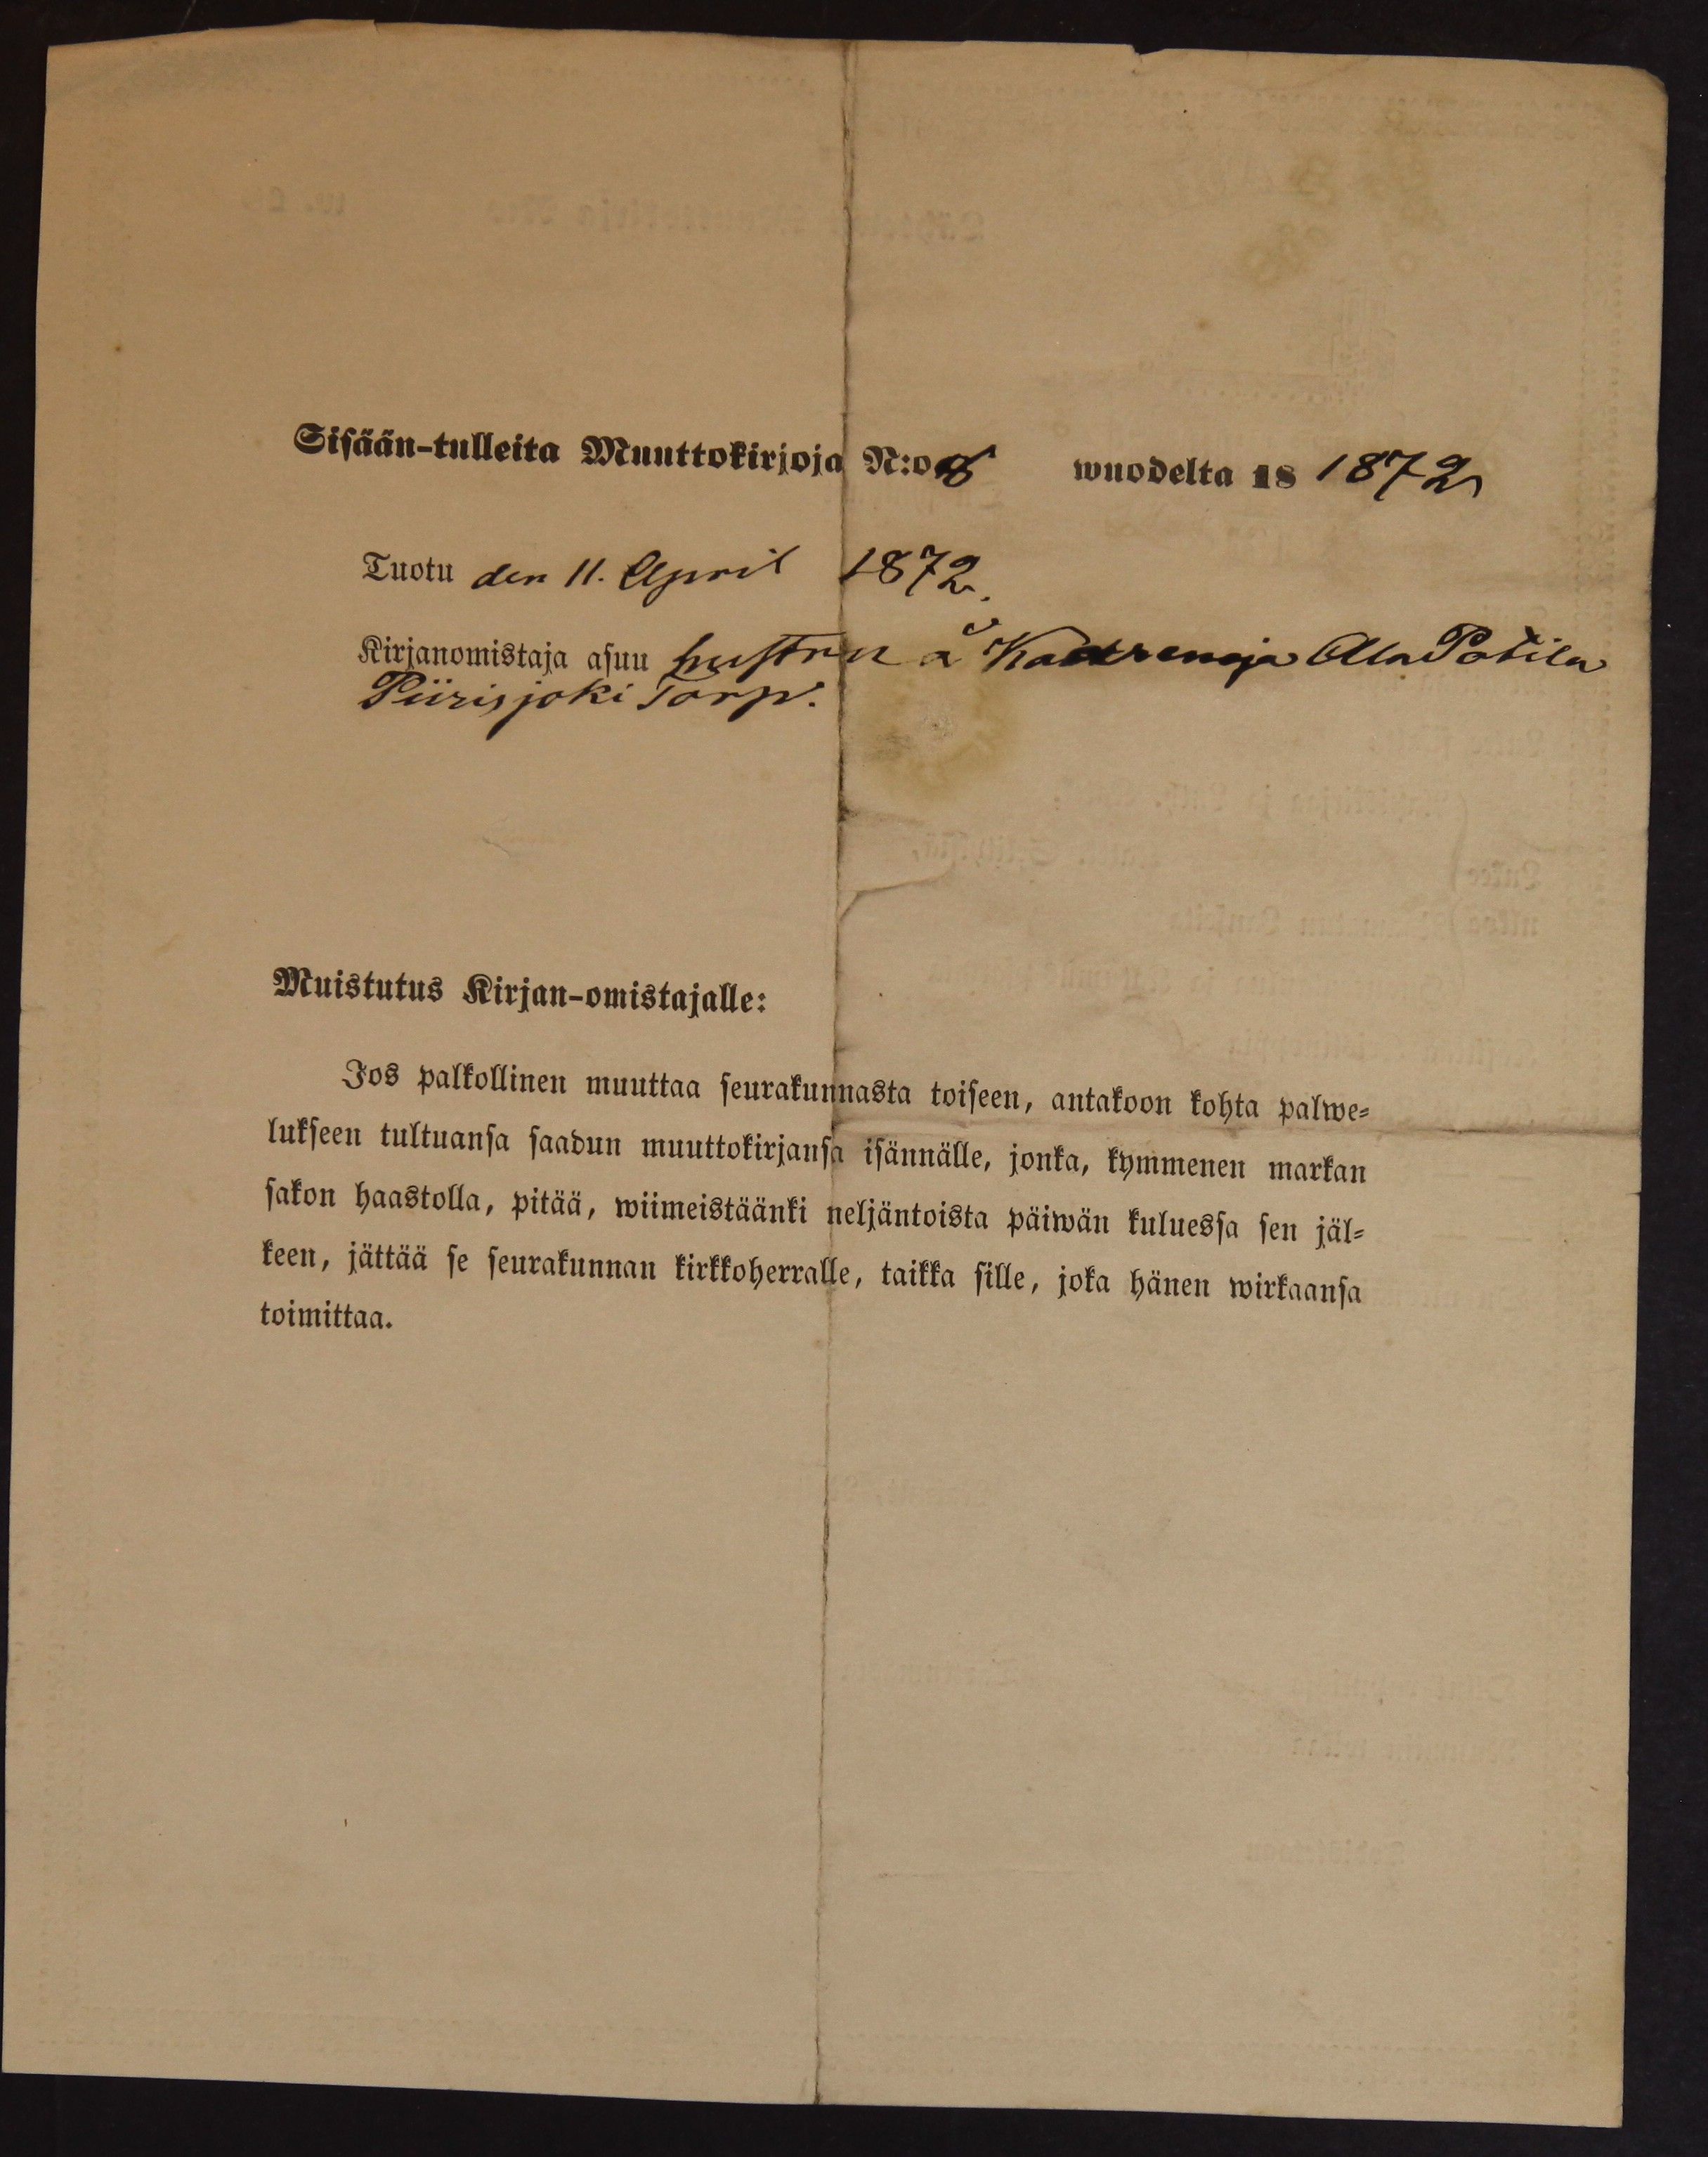 Sisään-tulleita Muuttokirjoja N:o 8 wuodelta 18 1872
Tuotu den 11. April 1872.
Kirjanomistaja asuu hustru å Ala Potila
Piirisjoki Torp.
Muistutus Kirjan-omistajalle:
Jos palkollinen muuttaa seurakunnasta toiseen, antakoon kohta palwe=
lukseen tultuansa saadun muuttokirjansa isännälle, jonka, kymmenen markan
sakon haastolla, pitää, wiimeistäänki neljäntoista päiwän kuluessa sen jäl=
keen, jättää se seurakunnan kirkkoherralle, taikka sille, joka hänen wirkaansa
toimittaa.